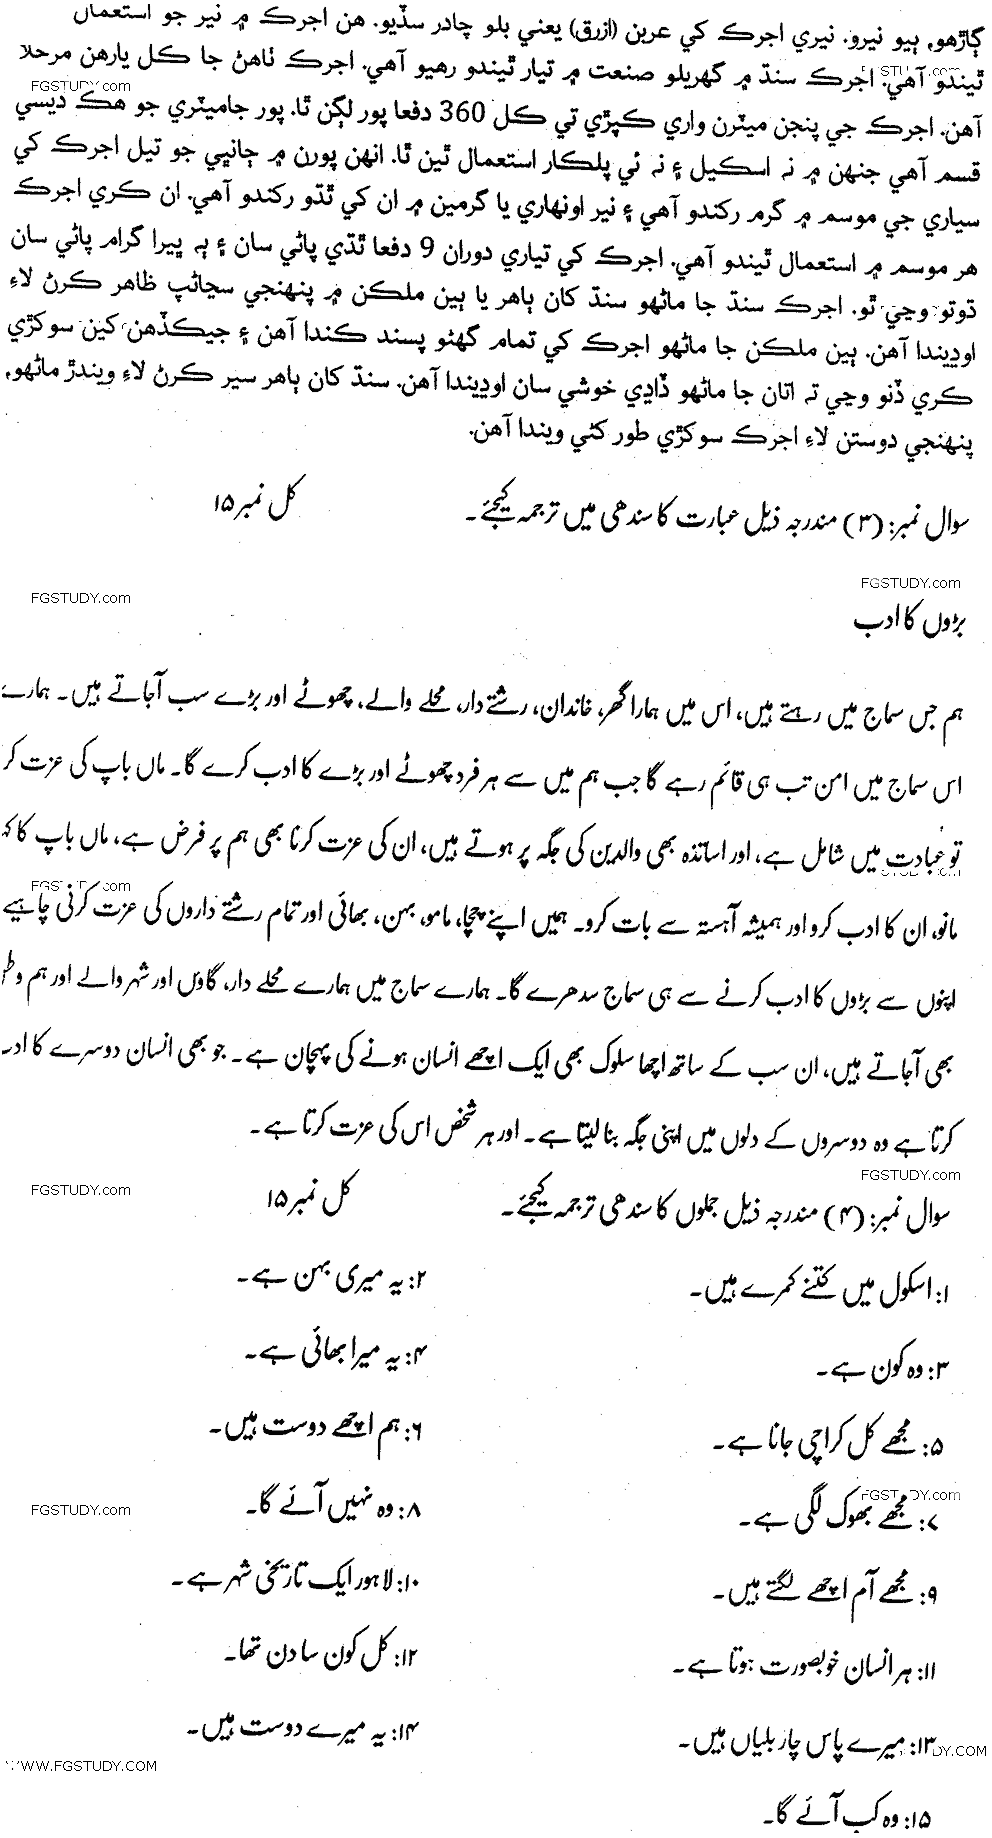 ڳاڙهو, ٻيو نيرو. نيري اجرڪ کي عربن (ازرق) يعني بلو چادر سڏيو. هن اجرڪ ۾ نير جو استعمال
ٿيندو آهي. اجرڪ سنڌ ۾ گهريلو صنعت ۾ تيار ٿيندو رهيو آهي. اجرڪ ٺاهڻ جا ڪل يارهن مرحلا
FGSTUDY.com
آهن. اجرڪ جي پنجن ميٽرن واري ڪپڙي تي ڪل 360 دفعا پور لڳن ٿا. پور جاميٽري جو هڪ ديسي
قسم آهي جنهن ۾ نہ اسڪيل ۽ نہ ئي پلڪار استعمال ٿين ٿا. انهن پورن ۾ ڄانڀي جو تيل اجرڪ کي
سياري جي موسم ۾ گرم رکندو آهي ۽ نير اونهاري يا گرمين ۾ ان کي ٿڌو رکندو آهي. ان ڪري اجرڪ
هر موسم ۾ استعمال ٿيندو آهي. اجرڪ کي تياري دوران 9 دفعا ٿڌي پاڻي سان ۽ ٻہ ڀيرا گرام پاڻي سان
ڌوتو وڃي ٿو. اجرڪ سنڌ جا ماڻهو سنڌ کان ٻاهر يا ٻين ملڪن ۾ پنهنجي سڃاڻپ ظاهر ڪرڻ لاءِ
اوڍيندا آهن. ٻين ملڪن جا ماڻهو اجرڪ کي تمام گهڻو پسند ڪندا آهن ۽ جيڪڏهن کين سوکڙي
ڪري ڏنو وڃي تہ اتان جا ماڻهو ڏاڍي خوشي سان اوڍيندا آهن. سنڌ کان ٻاهر سير ڪرڻ لاءِ ويندڙ ماڻهو,
پنهنجي دوستن لاءِ اجرڪ سوکڙي طور کڻي ويندا آهن.
سوال نمبر: (۳) مندرجہ ذیل عبارت کا سندھی میں ترجمہ کیجئے۔ کل نمبر ۱۵
FGSTUDY.com FGSTUDY.com
بڑوں کا ادب
ہم جس سماج میں رہتے ہیں، اس میں ہمارا گھر، خاندان، رشتے دار، محلے والے، چھوٹے اور بڑے سب آجاتے ہیں۔ ہمارے
اس سماج میں امن تب ہی قائم رہے گا جب ہم میں سے ہر فرد چھوٹے اور بڑے کا ادب کرے گا۔ ماں باپ کی عزت کر
تو عبادت میں شامل ہے، اور اساتذہ بھی والدین کی جگہ پر ہوتے ہیں، ان کی عزت کرنا بھی ہم پر فرض ہے، ماں باپ کا
مانو، ان کا ادب کرو اور ہمیشہ آہستہ سے بات کرو۔ ہمیں اپنے چچا، مامو، بہن، بھائی اور تمام رشتے داروں کی عزت کرنی چاہیے
اپنوں سے بڑوں کا ادب کرنے سے ہی سماج سدھرے گا۔ ہمارے سماج میں ہمارے محلے دار، گاؤں اور شہر والے اور ہم
بھی آجاتے ہیں، ان سب کے ساتھ اچھا سلوک بھی ایک اچھے انسان ہونے کی پہچان ہے۔ جو بھی انسان دوسرے کا
کرتا ہے وہ دوسروں کے دلوں میں اپنی جگہ بنا لیتا ہے۔ اور ہر شخص اس کی عزت کرتا ہے۔
FGSTUDY.com FGSTUDY.com
سوال نمبر: (۴) مندرجہ ذیل جملوں کا سندھی ترجمہ کیجئے۔ کل نمبر ۱۵
۱: اسکول میں کتنے کمرے ہیں۔ ۲: یہ میری بہن ہے۔
۳: وہ کون ہے۔ ۴: یہ میرا بھائی ہے۔
۵: مجھے کل کراچی جانا ہے۔ ۶: ہم اچھے دوست ہیں۔
FGSTUDY.com FGSTUDY.com
۷: مجھے بھوک لگی ہے۔ ۸: وہ نہیں آئے گا۔
۹: مجھے آم اچھے لگتے ہیں۔ ۱۰: لاہور ایک تاریخی شہر ہے۔
۱۱: ہر انسان خوبصورت ہوتا ہے۔ ۱۲: کل کون سا دن تھا۔
۱۳: میرے پاس چار بلیاں ہیں۔ ۱۴: یہ میرے دوست ہیں۔
WWW.FGSTUDY.COM
۱۵: وہ کب آئے گا۔